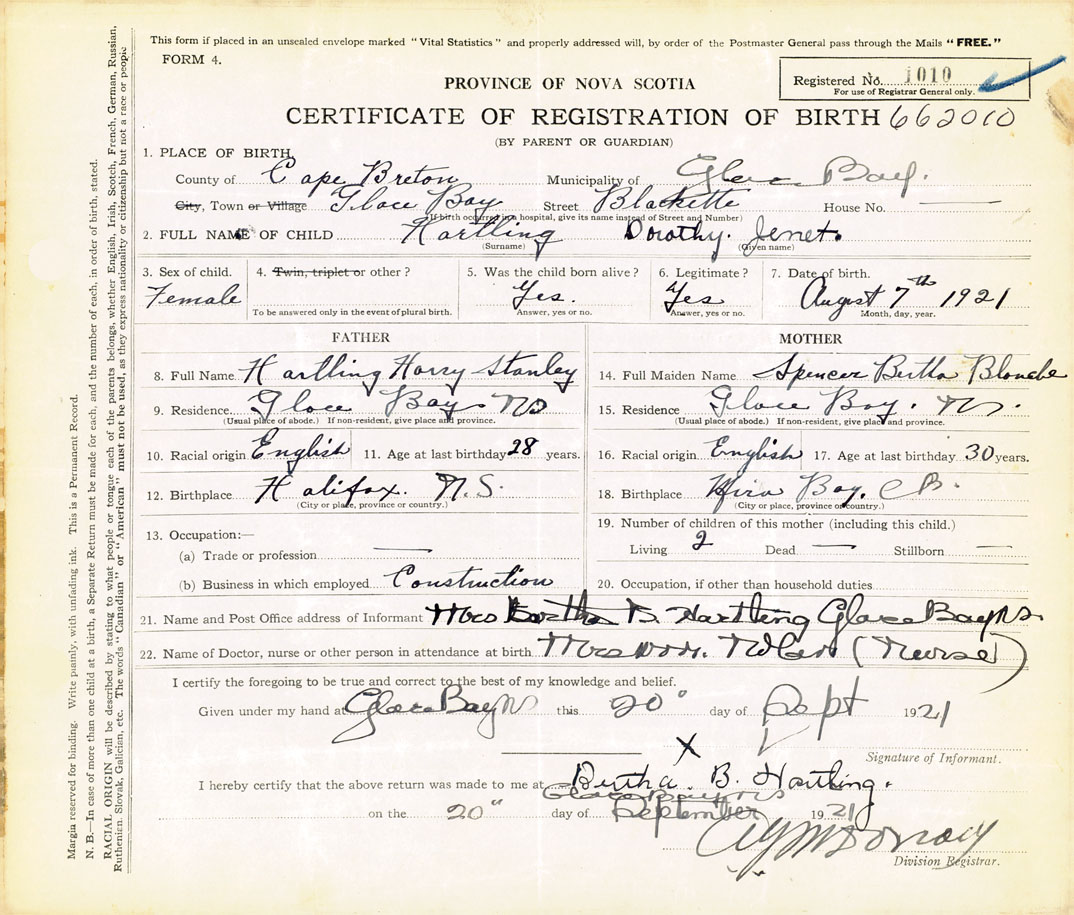 This form if placed in an unsealed envelope marked "Vital Statistics" and properly addressed will, by order of the Postmaster General pass through the Mails "FREE."
FORM 4.
Registered No. 1010
For use of Registrar General only.
PROVINCE OF NOVA SCOTIA
CERTIFICATE OF REGISTRATION OF BIRTH 662010
(BY PARENT OR GUARDIAN)
1. PLACE OF BIRTH,
County of Cape Breton Municipality of Glace Bay.
City, Town or Village Glace Bay Street Blackette House No.
(If birth occurred in a hospital, give its name instead of Street and Number)
2. FULL NAME OF CHILD Hartling Dorothy. Jenet.
(Surname) (Given name)
3. Sex of child. 4. Twin, triplet or other? 5. Was the child born alive? 6. Legitimate? 7. Date of birth.
Female Yes. Yes August 7th 1921
To be answered only in the event of plural birth. Answer, yes or no. Answer, yes or no. Month, day, year.
FATHER MOTHER
8. Full Name Hartling Harry Stanley 14. Full Maiden Name Spencer Bertha Blanche
9. Residence Glace Bay NS 15. Residence Glace Bay. NS.
(Usual place of abode.) If non-resident, give place and province. (Usual place of abode.) If non-resident, give place and province.
10. Racial origin English 11. Age at last birthday 28 years. 16. Racial origin English 17. Age at last birthday 30 years.
12. Birthplace Halifax. N.S. 18. Birthplace Mira Bay. C B.
(City or place, province or country.) (City or place, province or country.)
13. Occupation:— 19. Number of children of this mother (including this child.)
(a) Trade or profession — Living 2 Dead — Stillborn —
(b) Business in which employed Construction 20. Occupation, if other than household duties
21. Name and Post Office address of Informant Mrs Bertha B. Hartling Glace Bay NS.
22. Name of Doctor, nurse or other person in attendance at birth Mrs Wm. (Nurse)
I certify the foregoing to be true and correct to the best of my knowledge and belief.
Given under my hand at Glace Bay NS this 20" day of Sept 1921
X
Signature of Informant.
Bertha B. Hartling.
I hereby certify that the above return was made to me at Glace Bay NS
on the 20" day of September 1921
Division Registrar.
Margin reserved for binding. Write plainly, with unfading ink. This is a Permanent Record.
N. B.—In case of more than one child at a birth, a Separate Return must be made for each, and the number of each, in order of birth, stated.
RACIAL ORIGIN will be described by stating to what people or tongue each of the parents belongs, whether English, Irish, Scotch, French, German, Russian,
Ruthenian, Slovak, Galician, etc. The words "Canadian" or "American" must not be used, as they express nationality or citizenship but not a race or people